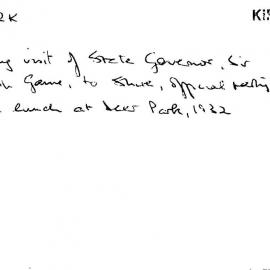 2K
KI
ng visit of State Governor, Sir
Game, to Shire, official
lunch at Deer Park, 1932